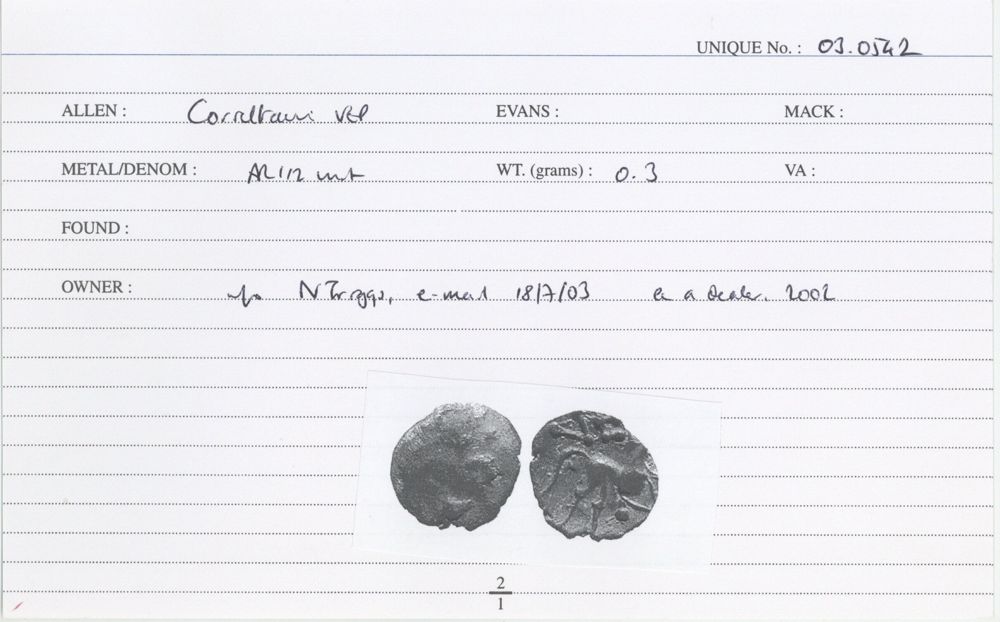 UNIQUE No. : 03.0542
ALLEN : Corieltauvi VEP EVANS : MACK :
METAL/DENOM : AR 1/2 unit WT. (grams) : 0.3 VA :
FOUND :
OWNER : N Triggs, e-mail 18/7/03 a dealer. 2002
2
1